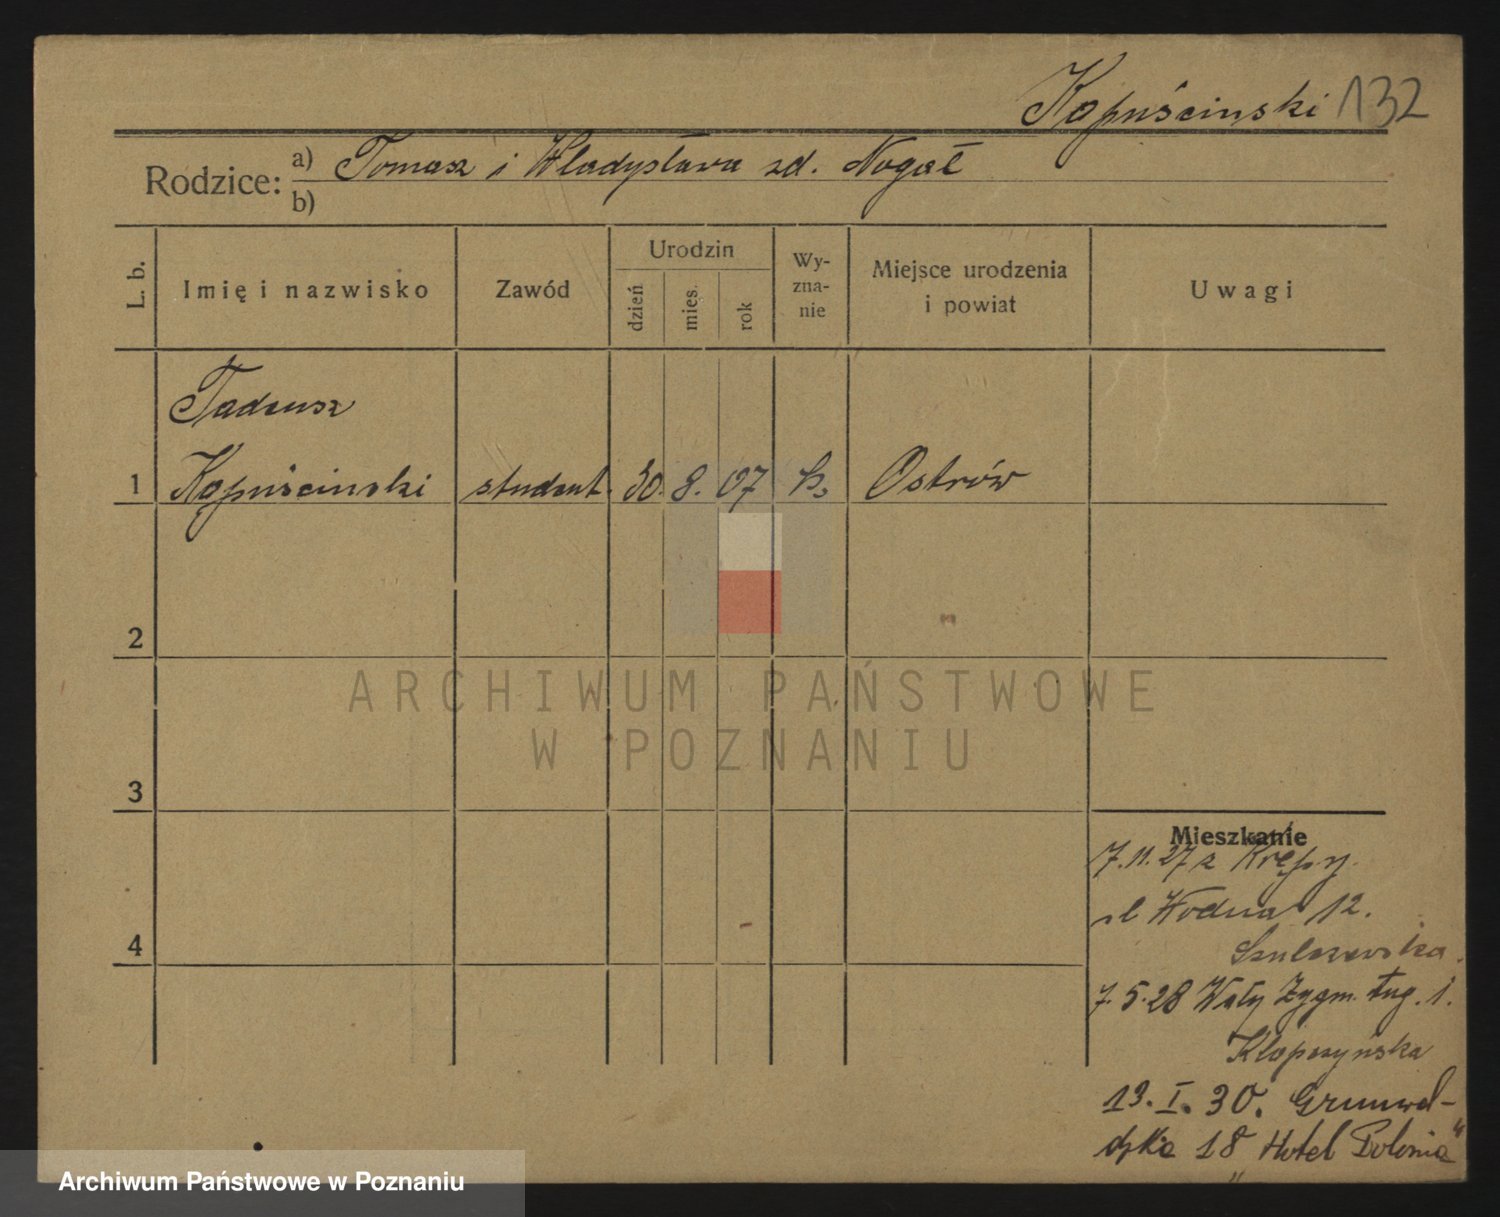 Kapuścinski 132
Rodzice: a) Tomasz i Władysława zd. Nogał
b)
L. b.
Imię i nazwisko
Zawód
Urodzin
dzień
mies.
rok
Wy-
zna-
nie
Miejsce urodzenia
i powiat
Uwagi
Tadeusz
1 Kapuścinski student. 30. 8. 07 k. Ostrów
2
3
4
Mieszkanie
7.11.27 z Krępy
ul Wodna 12.
Szulczewska.
7.5.28 Wały Zygm. Aug. 1.
Kłopszyńska
13. I. 30. Grunwal-
dzka 18 Hotel „Polonia"
ARCHIWUM PAŃSTWOWE
W POZNANIU
Archiwum Państwowe w Poznaniu